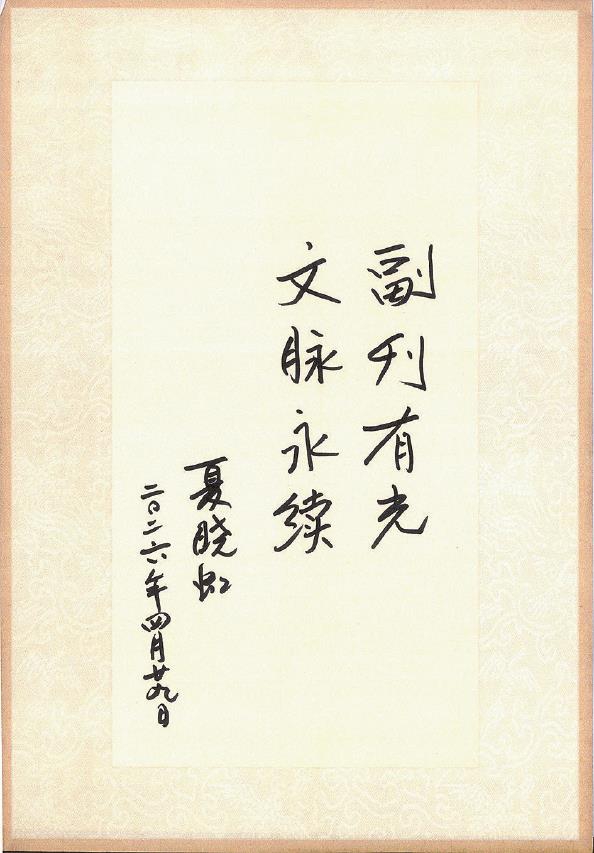 副刊有光
文脉永续
夏晓虹
二〇二六年四月廿九日